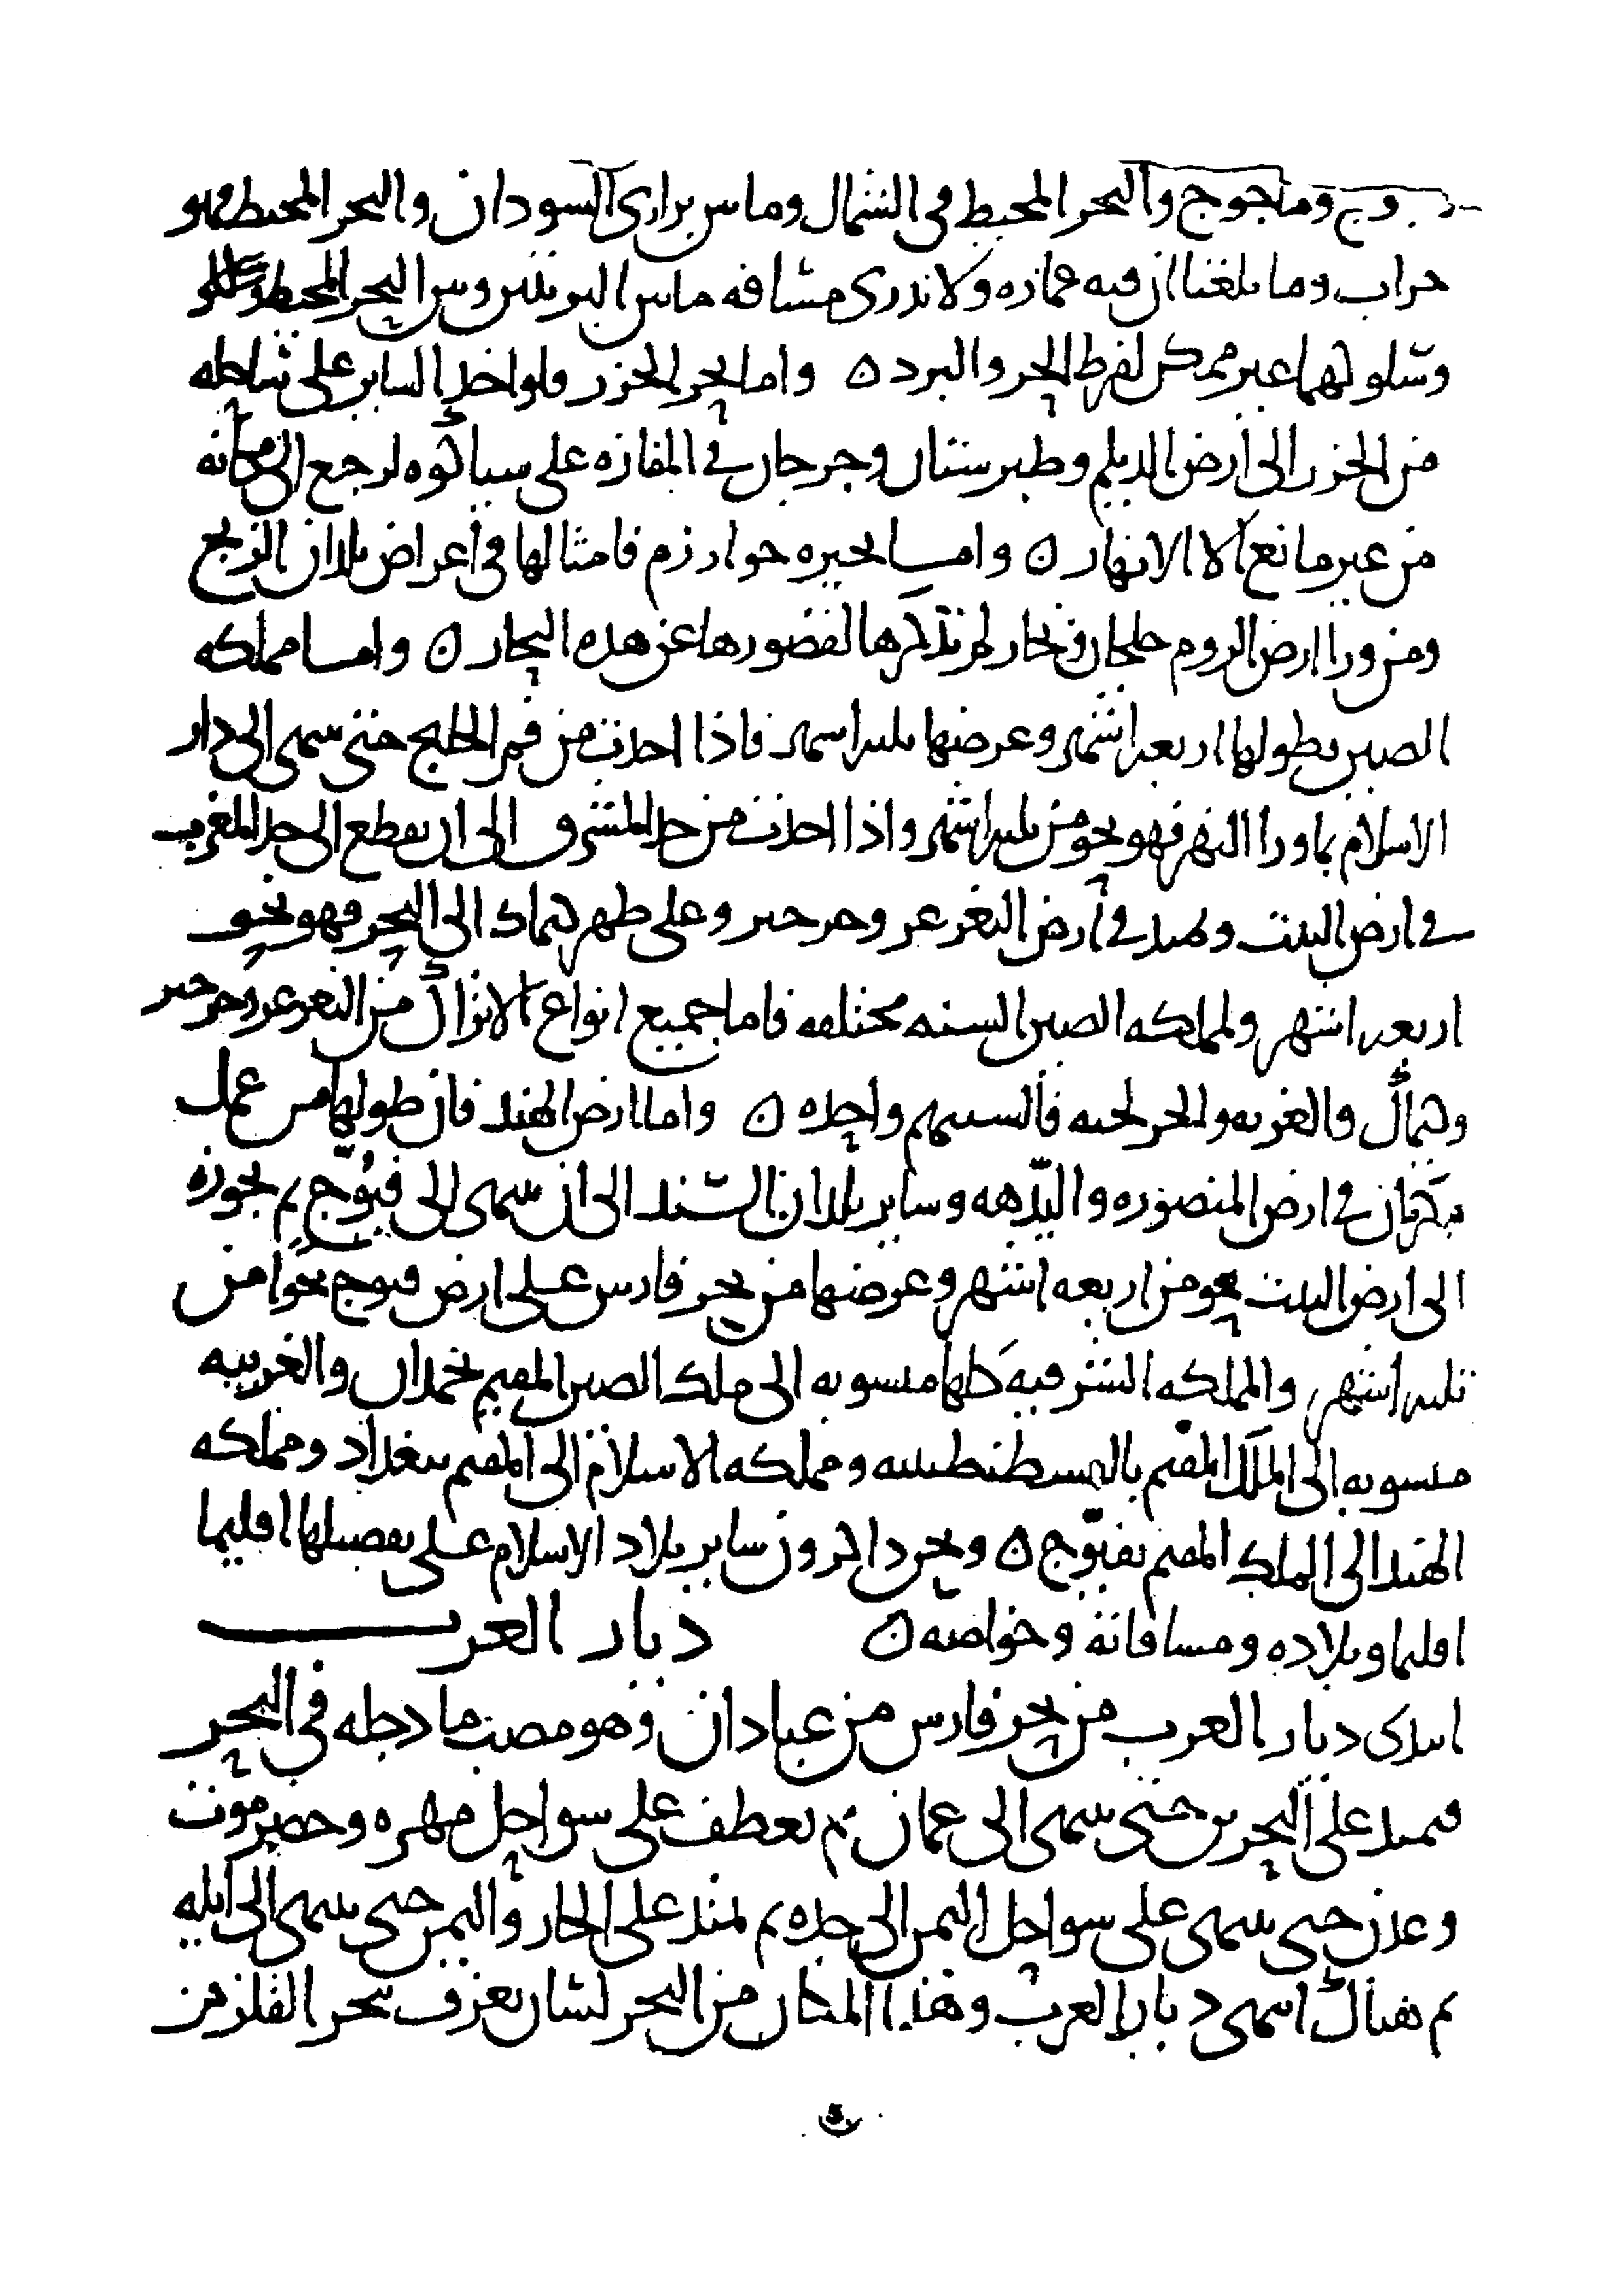 وماجوج والبحر المحيط في الشمال وما بين براري السودان والبحر المحيط فهو
خراب وما بلغنا ان فيه عماره ولا ندري مسافه ما بين البريتين وبين البحر المحيط
وسلوكهما غير ممكن لفرط الحر والبرد ن واما بحر الخزر فلو اخذ الساير على شاطيه
من الخزر الى ارض الديلم وطبرستان وجرجان في المفازه على سياكوه لرجع الى مكانه
من غير مانع الا الانهار ن واما بحيره خوارزم فامثالها في اعراض بلدان الزنج
ومن ورا ارض الروم خلجان وبحار لم نذكرها لقصورها عن هذه البحار ن واما مملكه
الصين فطولها اربعه اشهر وعرضها ثلثه اشهر فاذا اخذت من فم الخليج حتى تنتهي الى دار
الاسلام بماورا النهر فهو نحو من ثلثه اشهر واذا اخذت من حد المشرق الى ان تقطع الى حد المغرب
في ارض التبت وتمتد في ارض التغزغز وخرخيز وعلى ظهر كيماك الى البحر فهو نحو
اربعه اشهر ولمملكه الصين السنه مختلفه فاما جميع انواع الاتراك من التغزغز وخرخيز
وكيماك والغزيه والخرلخيه فالسنتهم واحده ن واما ارض الهند فان طولها من عمل
مكران في ارض المنصوره والبدهه وساير بلدان السند الى ان تنتهي الى قنوج ثم تجوزه
الى ارض التبت نحو من اربعه اشهر وعرضها من بحر فارس على ارض قنوج نحوا من
ثلثه اشهر والمملكه الشرقيه كلها منسوبه الى ملك الصين المقيم بخمدان والغربيه
منسوبه الى الملك المقيم بالقسطنطينيه ومملكه الاسلام الى المقيم ببغداد ومملكه
الهند الى الملك المقيم بقنوج ن ونحن ذاكرون ساير بلاد الاسلام على تفصيلها اقليما
اقليما وبلاده ومسافاته وخواصه ن ديار العرب
ابتدي ديار العرب من بحر فارس من عبادان وهو مصب ما دجله في البحر
فيمتد على البحرين حتى تنتهي الى عمان ثم تعطف على سواحل مهره وحضرموت
وعدن حتى تنتهي على سواحل اليمن الى جده ثم تمتد على الجار واليمن حتى تنتهي الى ايله
ثم هناك انتهى ديار العرب وهذا المكان من البحر لسان يعرف ببحر القلزم من